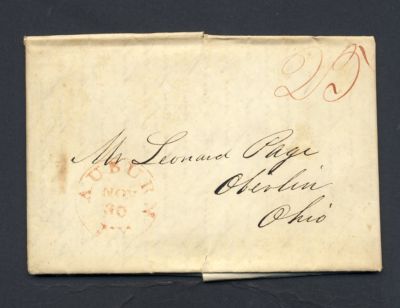 25
Mr Leonard Page
Oberlin
Ohio
AUBURN
NOV
30
N.Y.